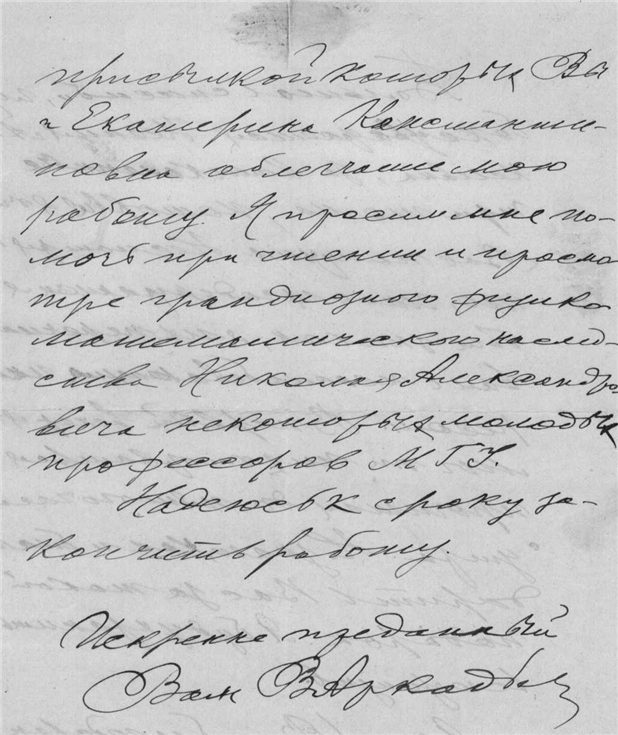 присылкой которых Вы
и Екатерина Константи-
новна облегчаете мою
работу. Я просил мне по-
мочь при чтении и просмо
тре грандиозного физико
математического наслед-
ства Николая Александро
вича некоторых молодых
профессоров МГУ.
Надеюсь к сроку за-
кончить работу.
Искренне преданный
Вам В. Аркадьев